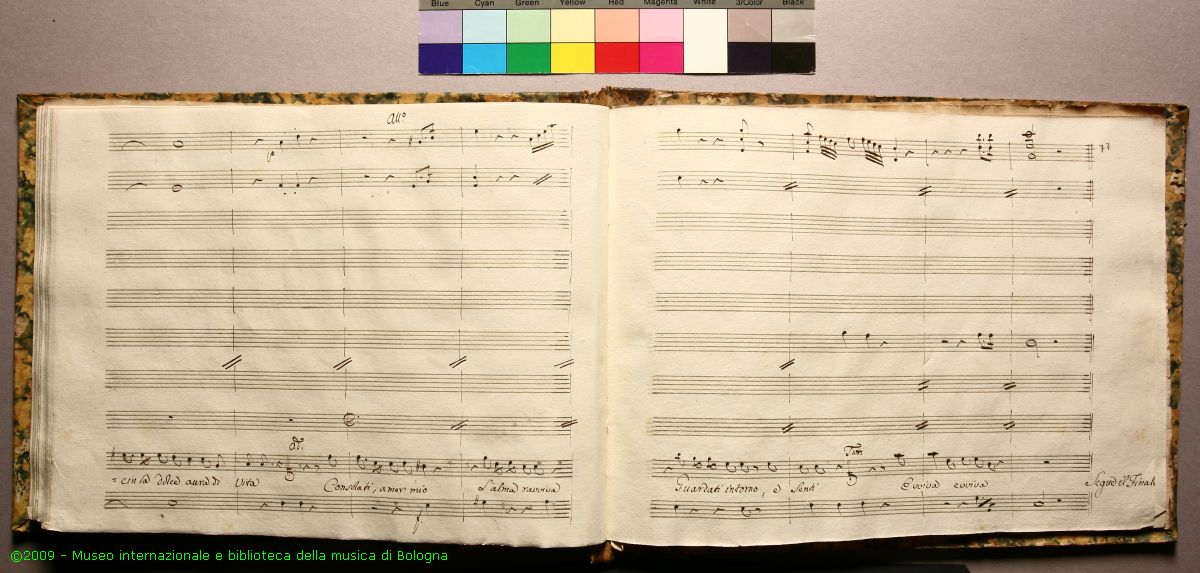 Blue Cyan Green Yellow Red Magenta White 3/Color Black
All:o
77
=cin la dolce aura di Vita Consolati, amor mio L'alma ravviva
Tutti
Guardati intorno, e Senti Evviva evviva
Segue il Finale
©2009 - Museo internazionale e biblioteca della musica di Bologna